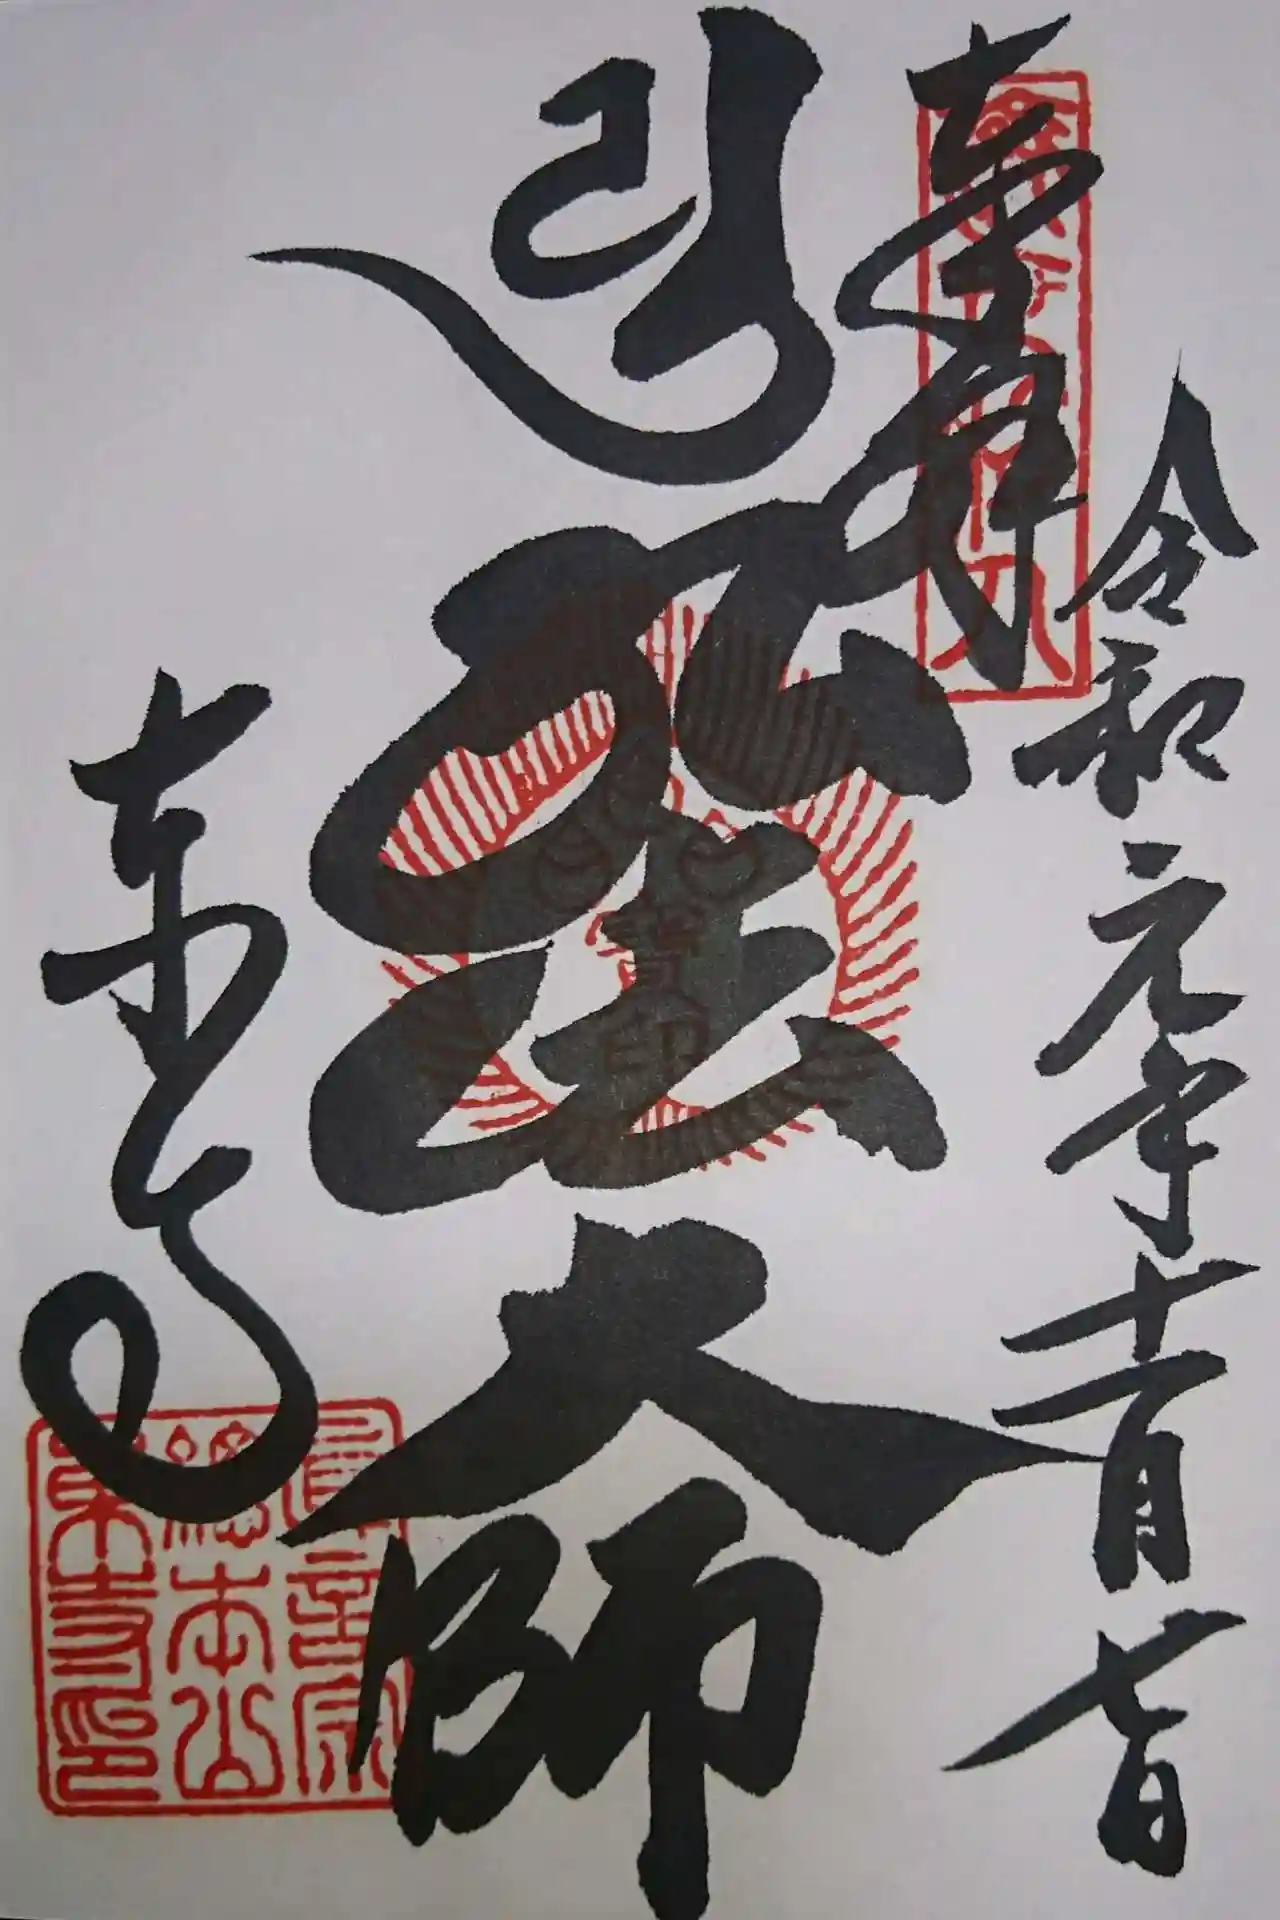 奉拝
令和元年十一月
弘法大師
寳印
東寺
真言宗
總本山
東寺印